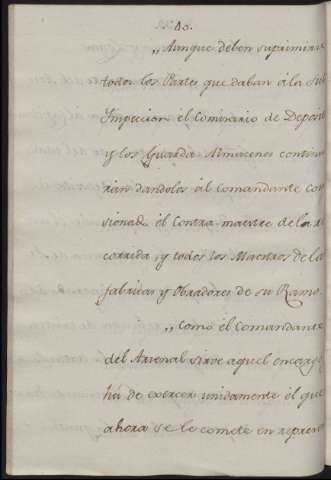 40.
„Aunque deben suprimirse
todos los Partes que daban á la Sub
Inspeccion el Comisario de Deposit
y los Guarda Almacenes continua
ran dandolos al Comandante co
sional el Contra-maestre de la
corrida, y todos los Maestros de la
fabricas y Obradores de su Ramo.
„Como el Comandante
del Arsenal sirve aquel encarg
ha de exercer unidamente el que
ahora se le comete en represen